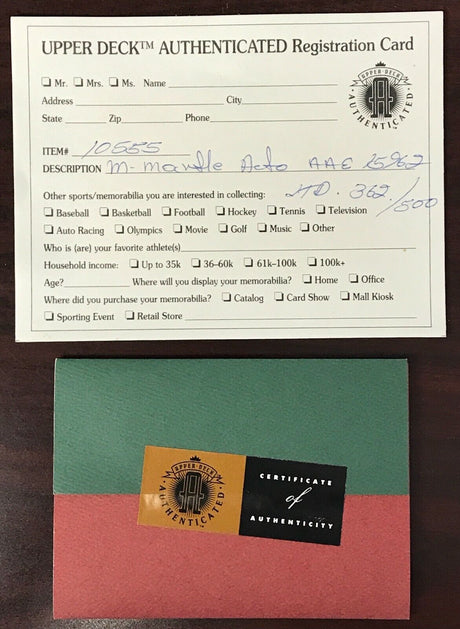 UPPER DECK™ AUTHENTICATED Registration Card
☐ Mr. ☐ Mrs. ☐ Ms. Name
Address City
State Zip Phone
UPPER·DECK
A
AUTHENTICATED
ITEM# 10555
DESCRIPTION M- Mantle Acto AAE 15962
Other sports/memorabilia you are interested in collecting: HD. 362/500
☐ Baseball ☐ Basketball ☐ Football ☐ Hockey ☐ Tennis ☐ Television
☐ Auto Racing ☐ Olympics ☐ Movie ☐ Golf ☐ Music ☐ Other
Who is (are) your favorite athlete(s)
Household income: ☐ Up to 35k ☐ 36–60k ☐ 61k–100k ☐ 100k+
Age? Where will you display your memorabilia? ☐ Home ☐ Office
Where did you purchase your memorabilia? ☐ Catalog ☐ Card Show ☐ Mall Kiosk
☐ Sporting Event ☐ Retail Store
UPPER·DECK
A
AUTHENTICATED
CERTIFICATE
of
AUTHENTICITY